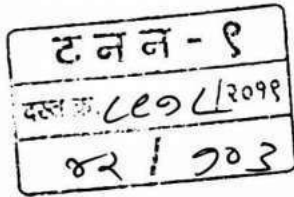 ट न न - ९
दस्त क्र. ८९७८/२०१९
४२ / १०३